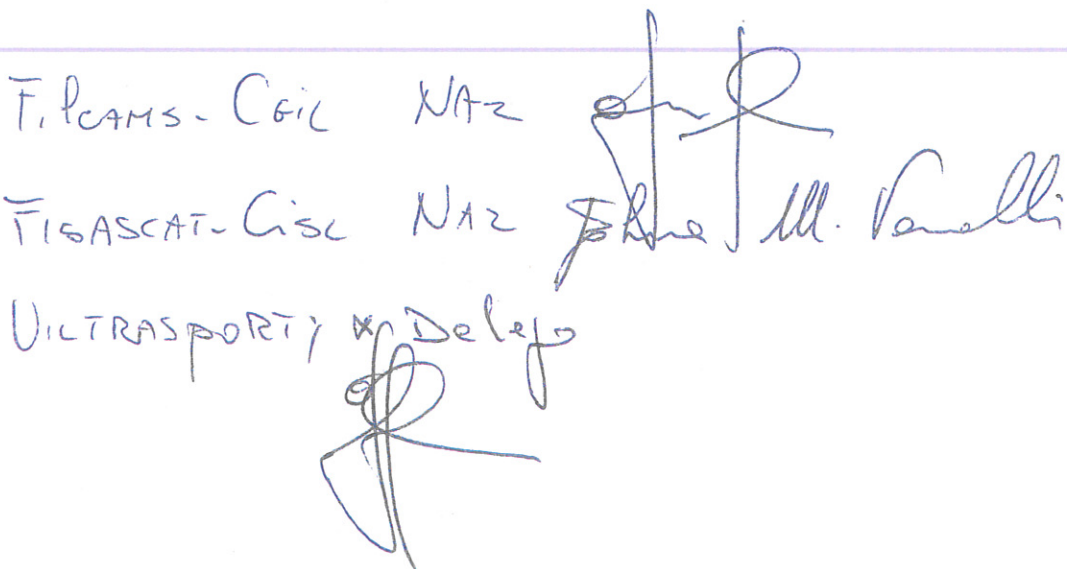 Filcams-CGIL NAZ
FISASCAT-CISL NAZ M. Vanelli
UILTRASPORTI x Delega